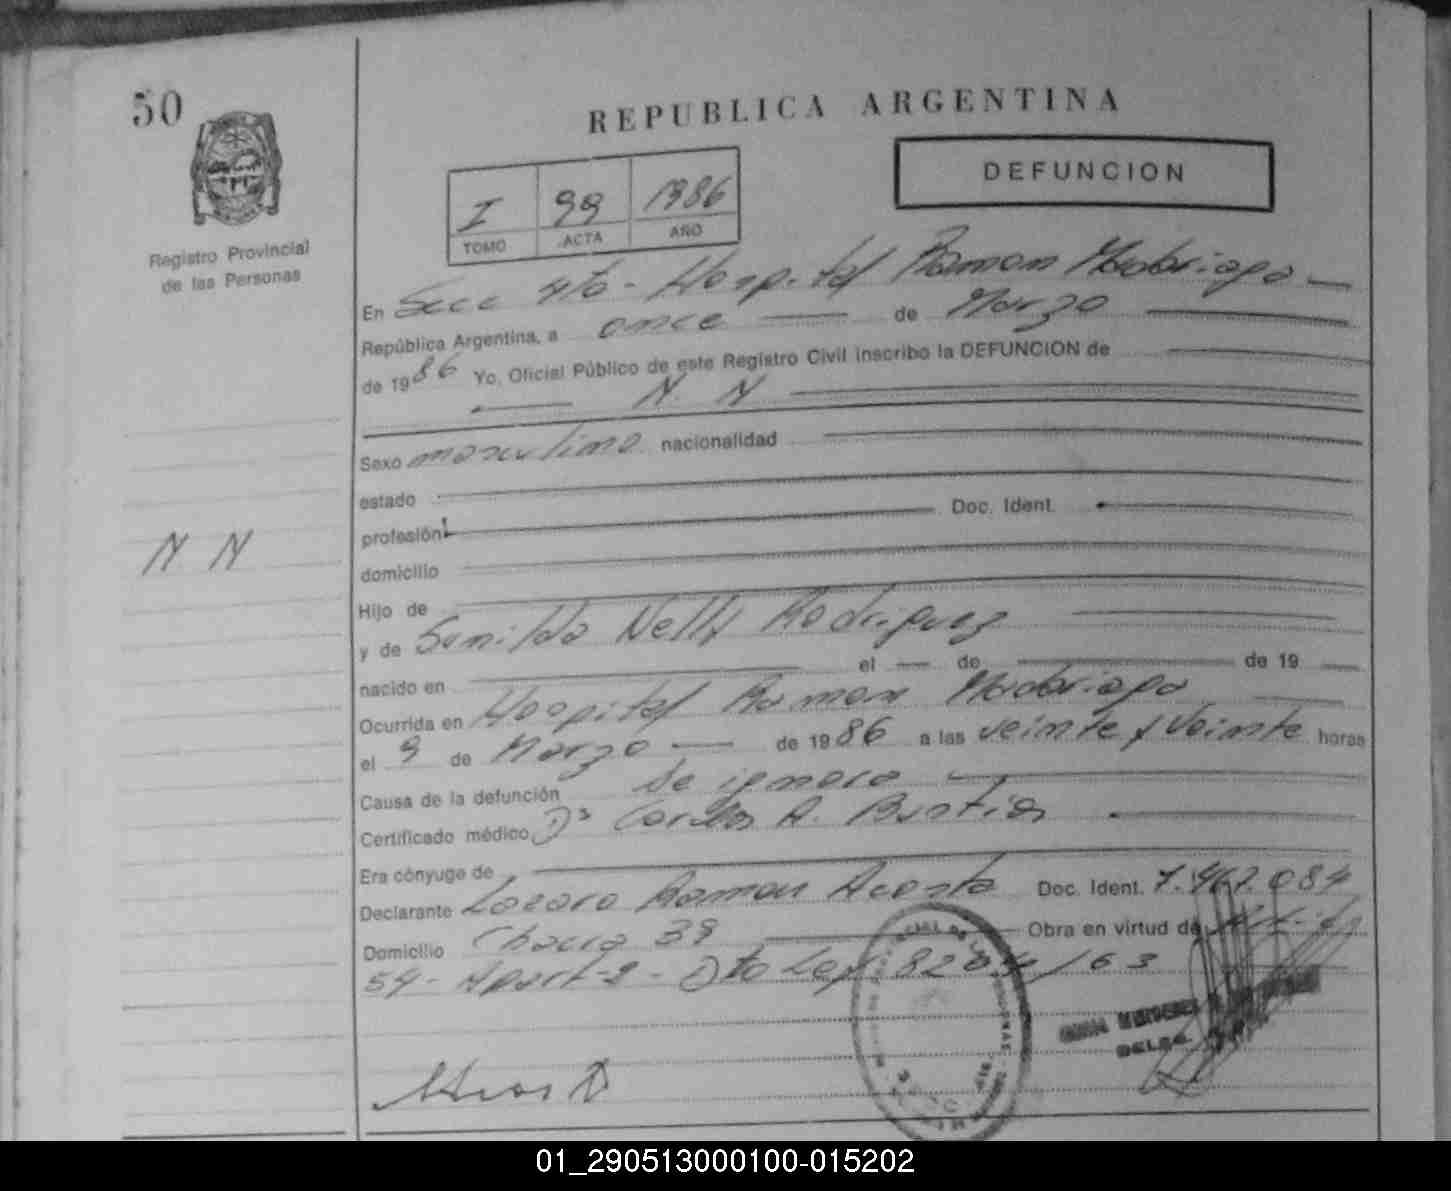 50
REPUBLICA ARGENTINA
DEFUNCION
I 99 1986
TOMO ACTA AÑO
Registro Provincial
de las Personas
En Secc 4ta - Hospital Ramon Madariaga
República Argentina, a once de Marzo
de 1986 Yo, Oficial Público de este Registro Civil inscribo la DEFUNCION de
N. N
Sexo masculino nacionalidad
estado
profesión Doc. Ident.
domicilio
N N
Hijo de
y de Nelly Rodriguez
nacido en el de de 19
Ocurrida en Hospital Ramon Madariaga
el 9 de Marzo de 1986 a las veinte y veinte horas
Causa de la defunción Se ignora
Certificado médico Dr Carlos A.
Era cónyuge de
Declarante Lazaro Ramon Acosta Doc. Ident. 7.467.084
Domicilio Chacra 39 Obra en virtud de
54 - Apart-2 - Dto Ley 8204/63
01_290513000100-015202